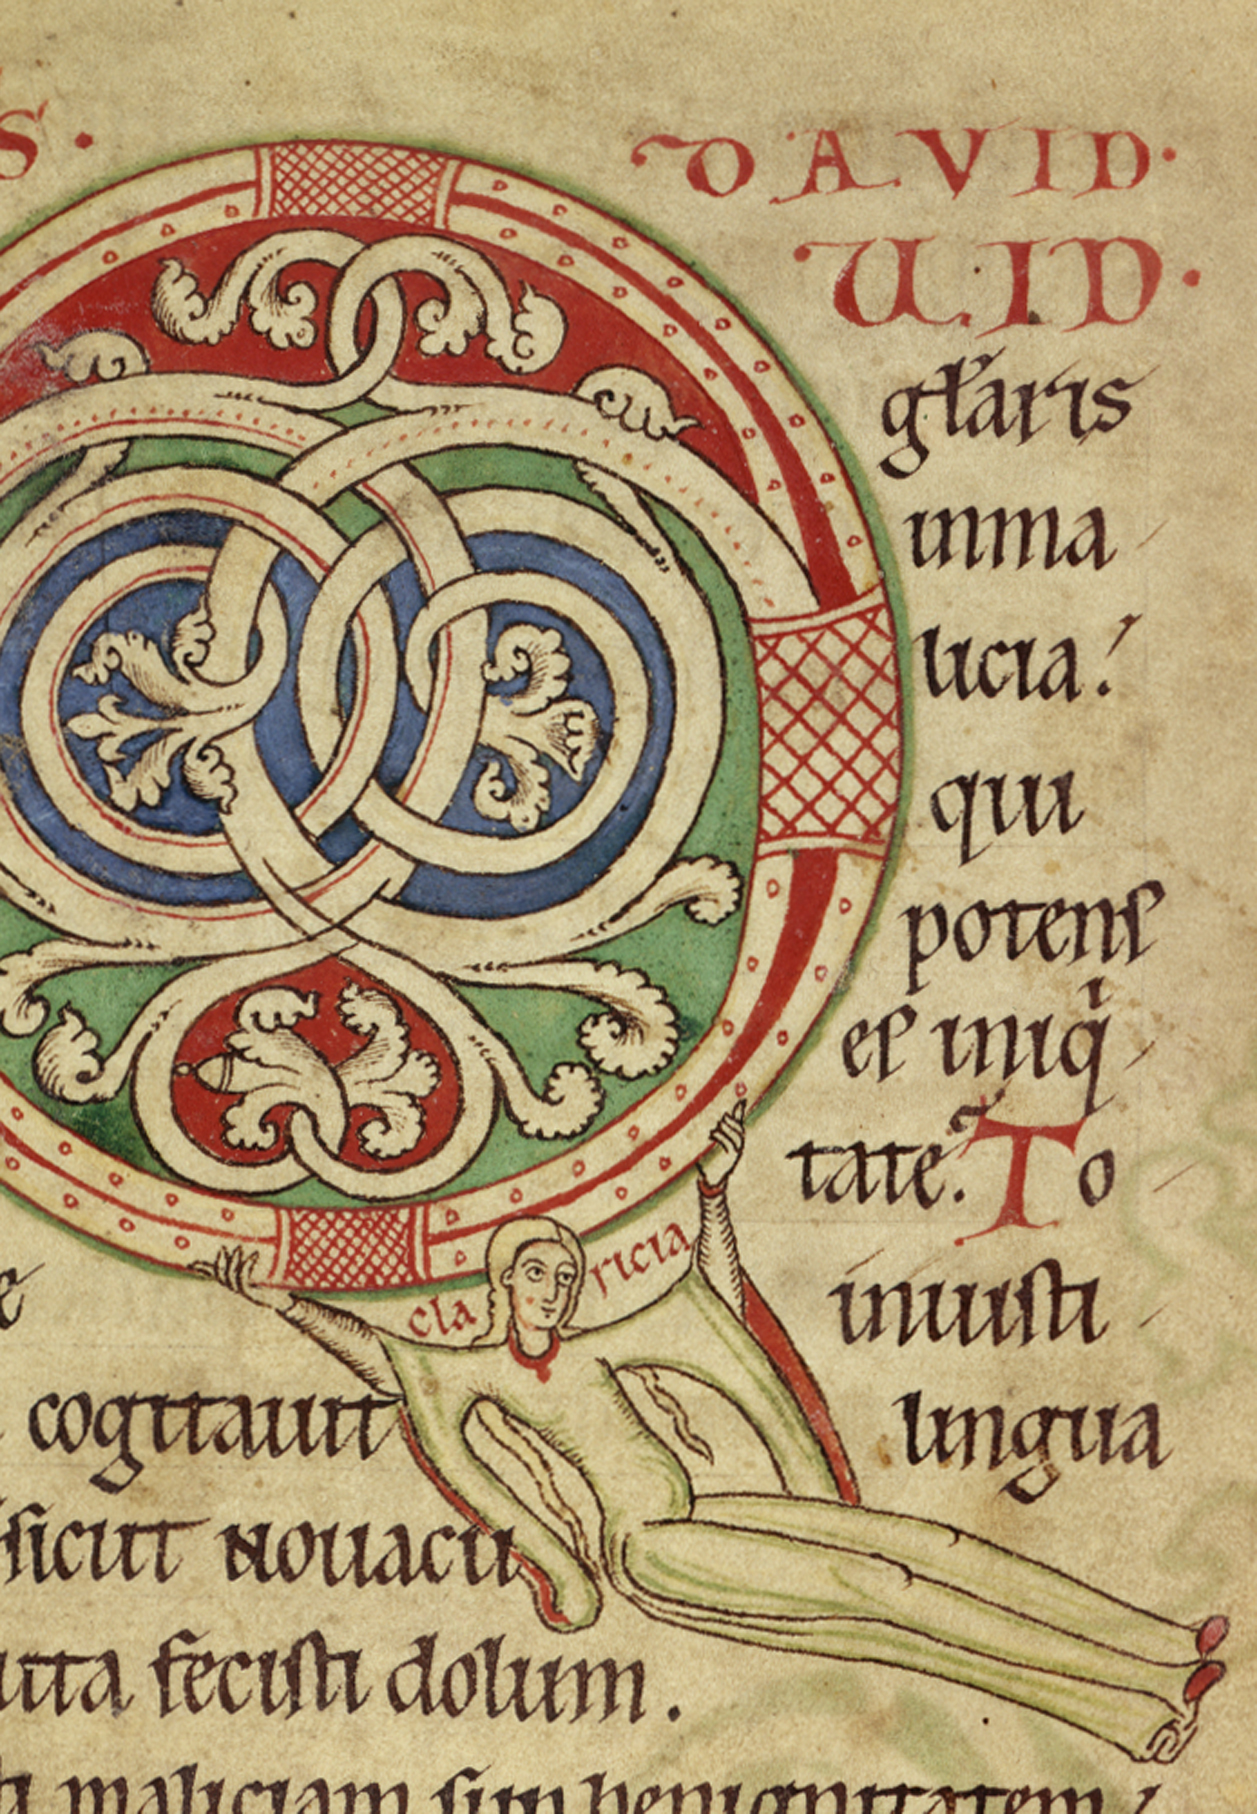 S · DAVID ·
· UID ·
głaris
inma
licia:
qui
potens
es iniq
tate. To
claricia
iniusti
cogitauit lingua
sicut nouacu
uta fecisti dolum.
maliciam sup benignitatem